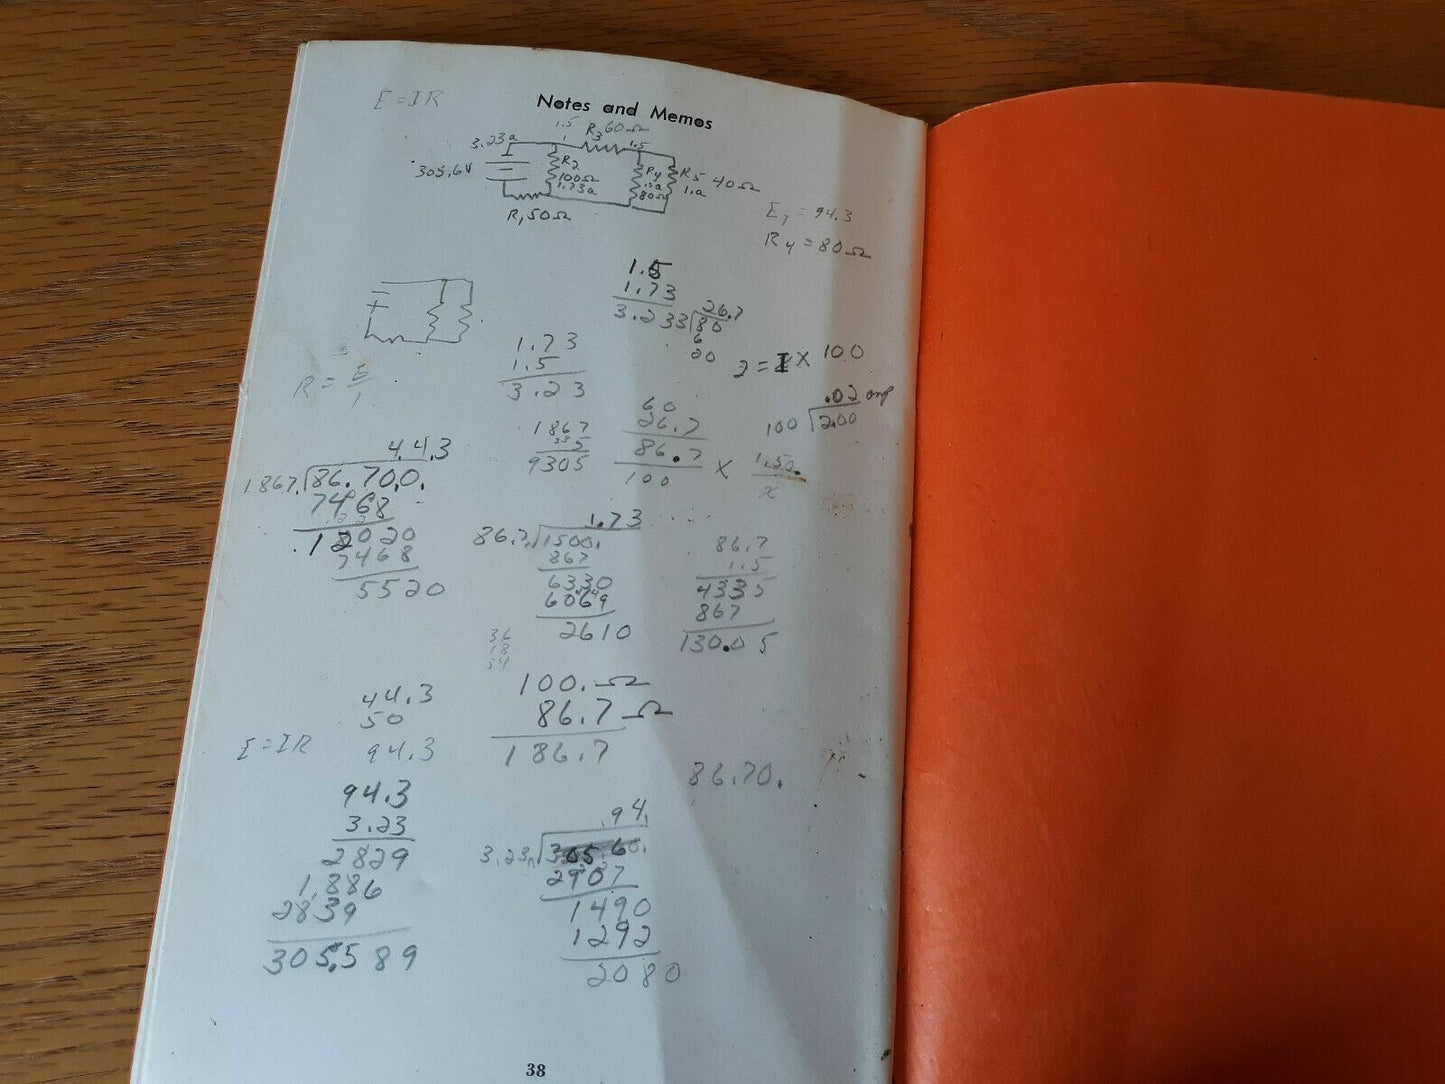 E = IR
Notes and Memos
1.5 R3 60Ω
3.23a 1.5
305.6V R2 R4 R5 40Ω
100Ω .5a 1.a
1.73a 80Ω
R1 50Ω
E7 = 94.3
R4 = 80Ω
1.5
1.73
3.23
26.7
3 80
6
20
1.73
1.5
3.23
2 = I X 100
.02 amp
100 2.00
R = E
I
1867
5
9305
60
26.7
86.7
100
X
1.50.
x
4.4.3
1867. 86.70,0.
7468
12020
7468
5520
1.73
86.7 1500.
867
6330
6069
2610
86.7
1.5
4335
867
130.05
36
18
54
100. Ω
86.7 Ω
186.7
44.3
50
94.3
E = IR
86.70.
94.3
3.23
2829
1,886
2839
305.589
.94.
3.23 305 60.
2907
1490
1292
2080
38